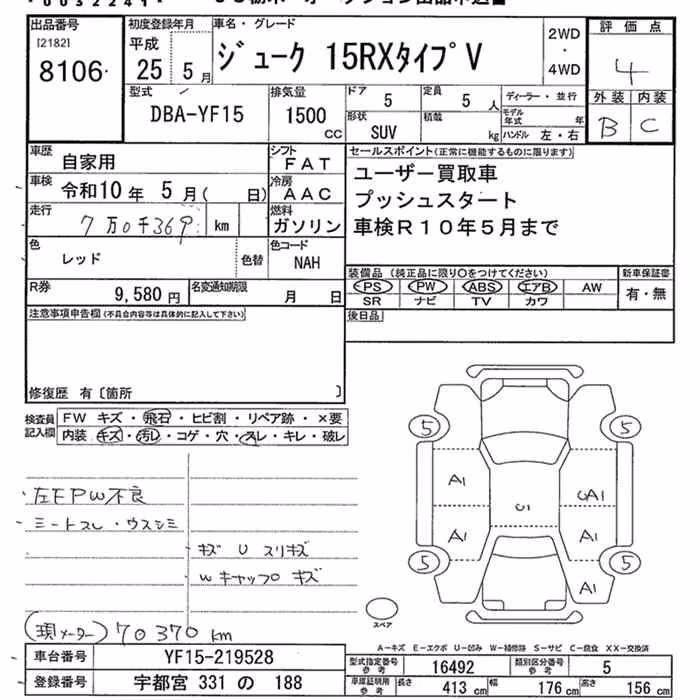 出品番号 初度登録年月 車名・グレード 2WD・4WD 評価点
[2182] 8106 平成 25 5月 ジューク 15RXタイプV 4
外装 内装
B C
型式 排気量 ドア 定員 ディーラー・並行
DBA-YF15 1500 CC 5 5 人 モデル年式 年
形状 積載 SUV kg ハンドル 左・右
車歴 自家用 シフト FAT
車検 令和10年 5月( 日) 冷房 AAC
走行 7万0千369 km 燃料 ガソリン
色 レッド 色替 色コード NAH
R券 9,580円 名変通知期限 月 日
セールスポイント(正常に機能するものに限ります)
ユーザー買取車
プッシュスタート
車検R10年5月まで
装備品(純正品に限り○をつけてください) 新車保証書
PS PW ABS エアB AW 有・無
SR ナビ TV カワ
後日品
注意事項申告欄(不具合内容等は具体的に記入して下さい)
修復歴 有〔箇所 〕
検査員記入欄
FW キズ・飛石・ヒビ割・リペア跡・×要
内装・キズ・汚レ・コゲ・穴・スレ・キレ・破レ
左FPW不良
シートスレ・ウスシミ
キズ U スリキズ
Wキャップ キズ
(現メーター) 70370 km
5 5
A1 UA1
U1
A1 A1
5 5
A1
スペア
A－キズ E－エクボ U－凹み W－補修跡 S－サビ C－腐食 XX－交換済
車台番号 YF15-219528 型式指定番号 参考 16492 類別区分番号 参考 5
登録番号 宇都宮 331 の 188 車庫証明用 参考 長さ 413 cm 幅 176 cm 高さ 156 cm